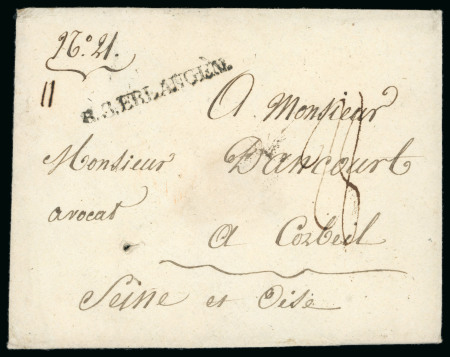 No. 21.
11
R.3.ERLANGEN.
A Monsieur
Monsieur Dancourt
avocat
a Corbeil
Seine et Oise